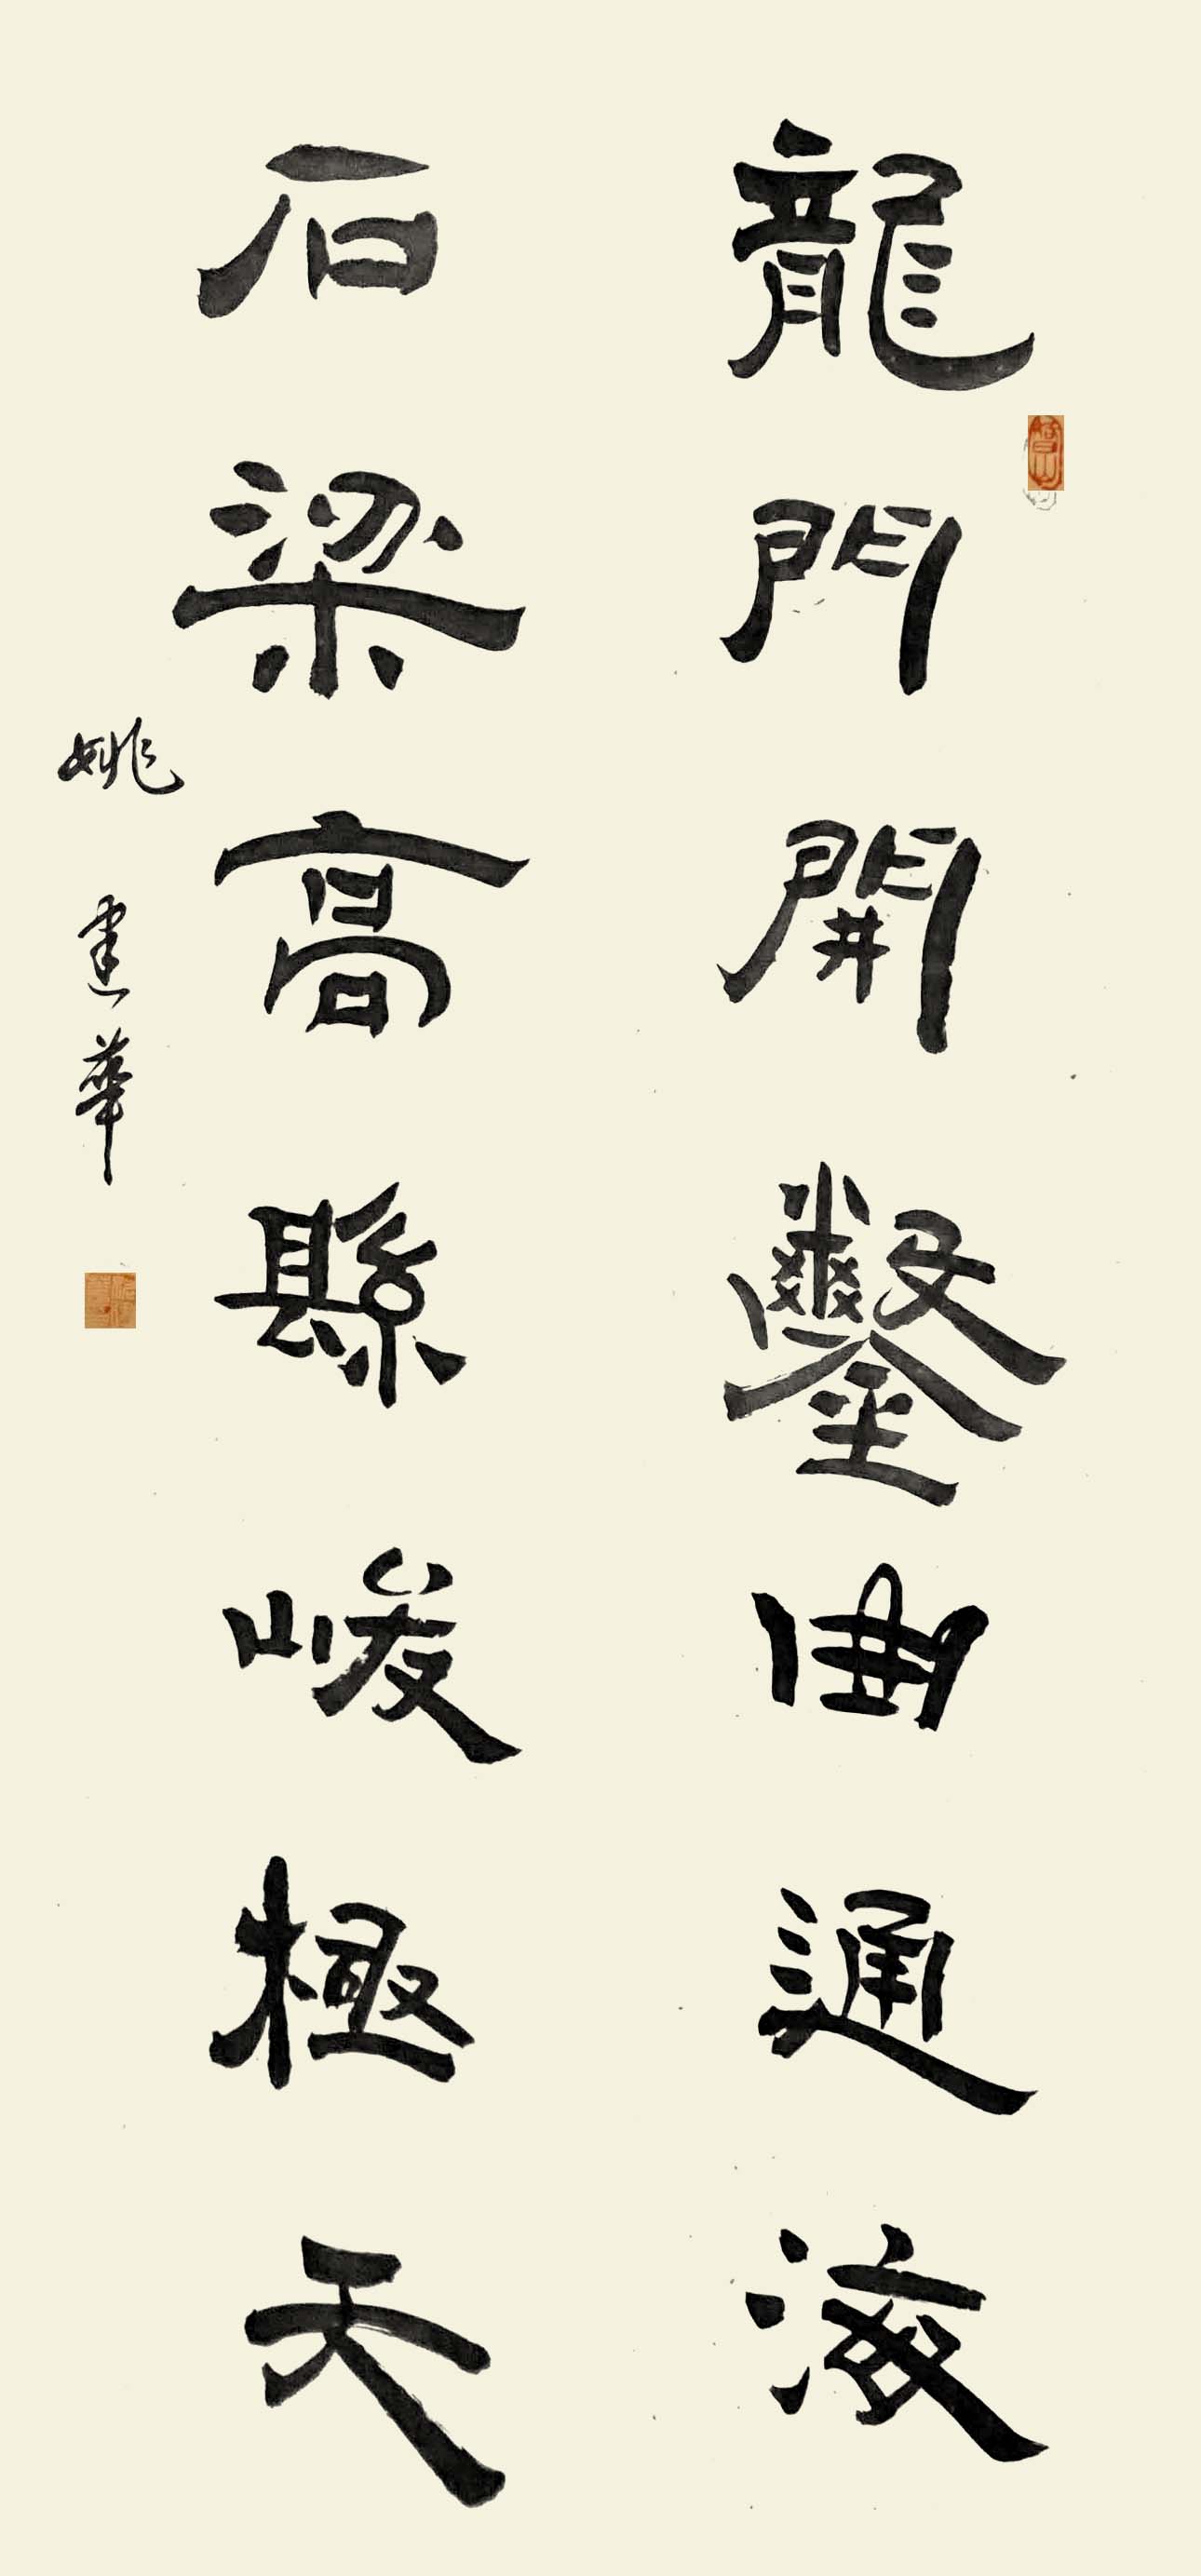 龍門開鑿曲通海
石梁高縣峻極天
姚建華